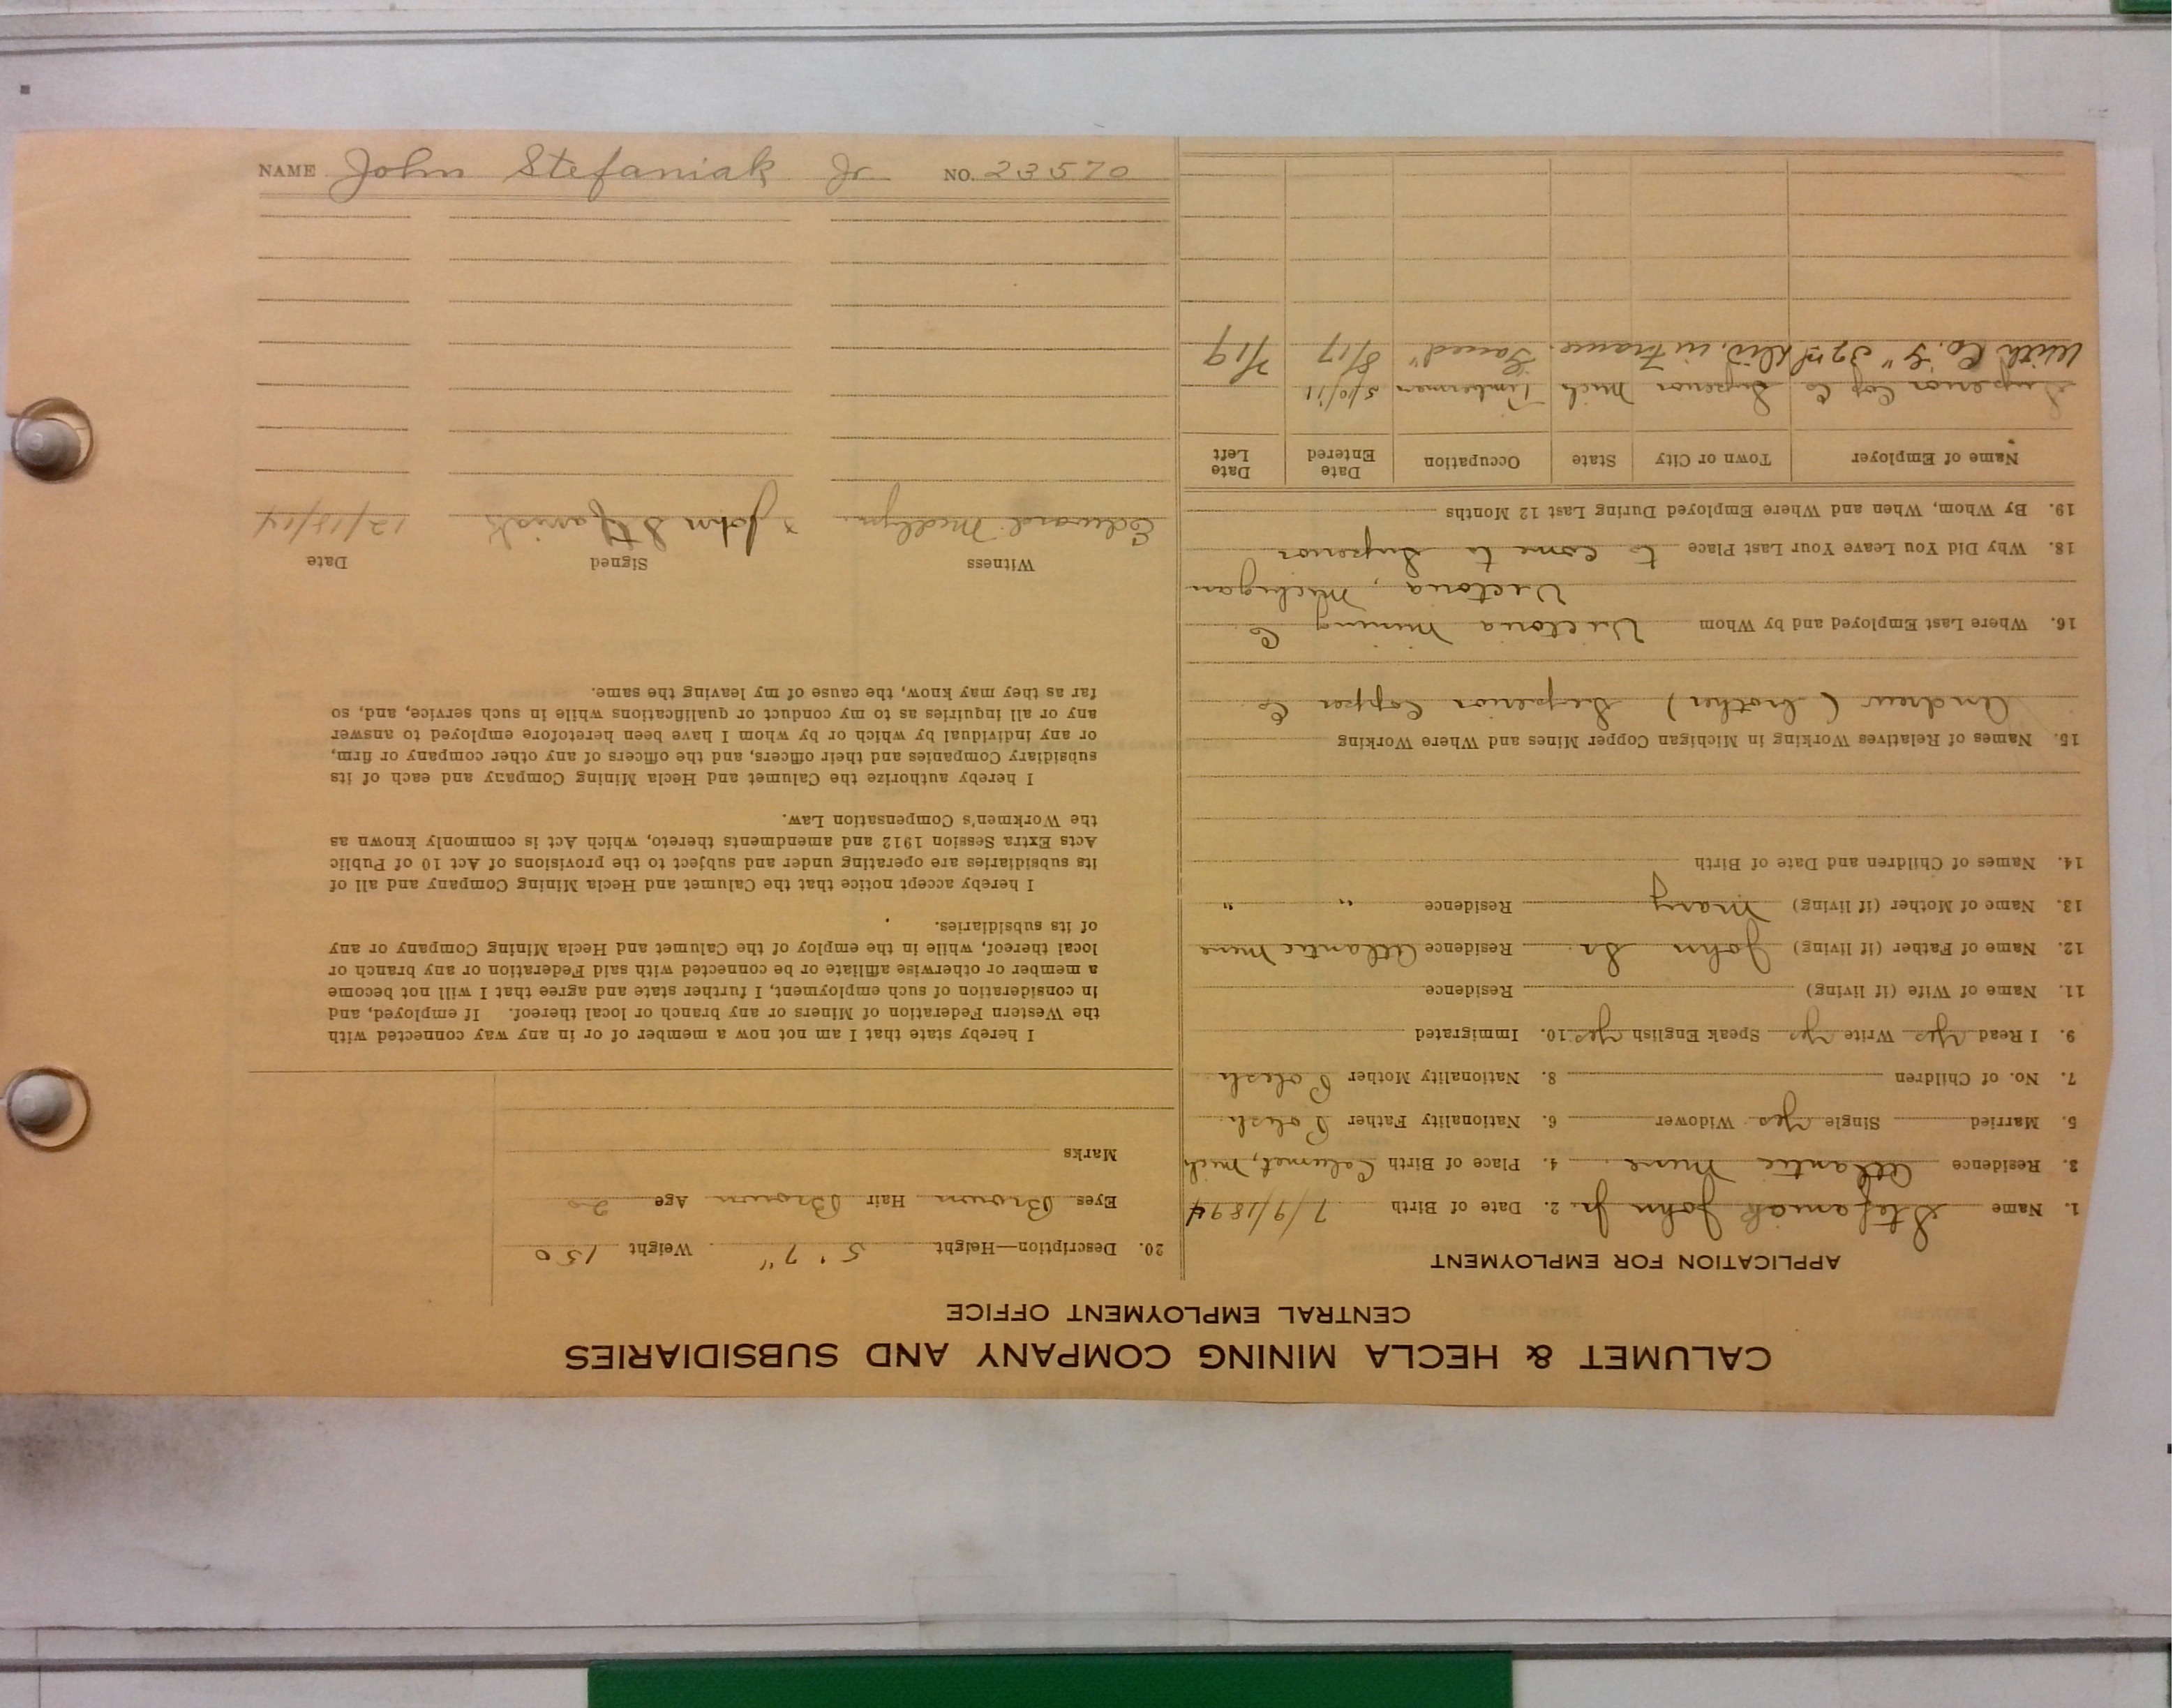 NAME John Stefaniak Jr. NO. 23570
CALUMET & HECLA MINING COMPANY AND SUBSIDIARIES
CENTRAL EMPLOYMENT OFFICE
APPLICATION FOR EMPLOYMENT
1. Name Stefaniak John Jr. 2. Date of Birth 7/9/1894
3. Residence Atlantic Mine 4. Place of Birth Calumet, Mich
5. Married Single Yes Widower 6. Nationality Father Polish
7. No. of Children 8. Nationality Mother Polish
9. I Read Yes Write Yes Speak English Yes 10. Immigrated
11. Name of Wife (if living) Residence
12. Name of Father (if living) John Sr. Residence Atlantic Mine
13. Name of Mother (if living) Mary Residence " "
14. Names of Children and Date of Birth
15. Names of Relatives Working in Michigan Copper Mines and Where Working
Andrew (brother) Superior Copper Co
16. Where Last Employed and by Whom Victoria Mining Co
Victoria, Michigan
18. Why Did You Leave Your Last Place to come to Superior
19. By Whom, When and Where Employed During Last 12 Months
Name of Employer Town or City State Occupation Date Entered Date Left
Superior Cop Co Superior Mich Timberman 5/10/11
With Co. "G" 32nd Div. in France. 8/17 /19
20. Description—Height 5' 7" Weight 150
Eyes Brown Hair Brown Age 20
Marks
I hereby state that I am not now a member of or in any way connected with
the Western Federation of Miners or any branch or local thereof. If employed, and
in consideration of such employment, I further state and agree that I will not become
a member or otherwise affiliate or be connected with said Federation or any branch or
local thereof, while in the employ of the Calumet and Hecla Mining Company or any
of its subsidiaries.
I hereby accept notice that the Calumet and Hecla Mining Company and all of
its subsidiaries are operating under and subject to the provisions of Act 10 of Public
Acts Extra Session 1912 and amendments thereto, which Act is commonly known as
the Workmen's Compensation Law.
I hereby authorize the Calumet and Hecla Mining Company and each of its
subsidiary Companies and their officers, and the officers of any other company or firm,
or any individual by which or by whom I have been heretofore employed to answer
any or all inquiries as to my conduct or qualifications while in such service, and, so
far as they may know, the cause of my leaving the same.
Witness Signed Date
Edward Medlyn x John Stefaniak 12/18/14